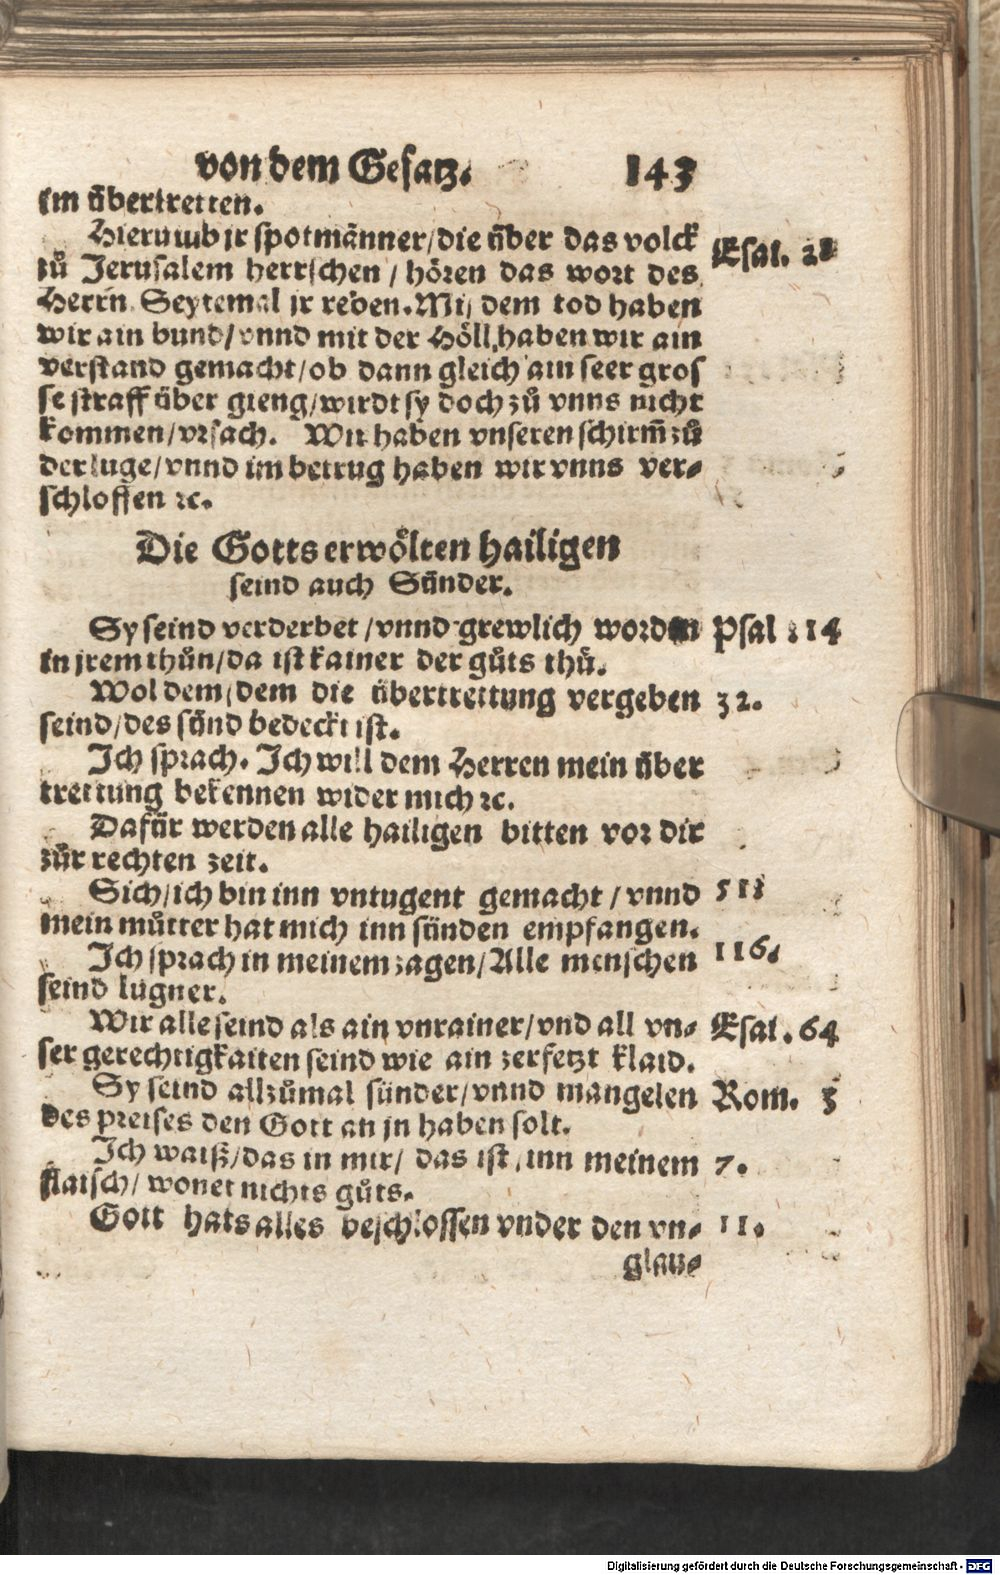 von dem Gesatz. 143
im übertretten.
Hierumb jr spotmänner/die über das volck Esai. 28
zů Jerusalem herrschen / hören das wort des
Herrn Seytemal jr reden. Mit dem tod haben
wir ain bund/vnnd mit der Höll haben wir ain
verstand gemacht/ob dann gleich ain seer gros
se straff über gieng/wirdt sy doch zů vnns nicht
kommen/vrsach. Wir haben vnseren schirm̃ zů
der luge/vnnd im betrug haben wir vnns ver⸗
schlossen ꝛc.
Die Gotts erwölten hailigen
seind auch Sünder.
Sy seind verderbet/vnnd grewlich worden Psal 14
in jrem thůn/da ist kainer der gůts thů.
Wol dem/dem die übertrettung vergeben 32.
seind/des sünd bedeckt ist.
Ich sprach. Ich will dem Herren mein über
trettung bekennen wider mich ꝛc.
Dafür werden alle hailigen bitten vor dir
zůr rechten zeit.
Sich/ich bin inn vntugent gemacht / vnnd 51
mein můtter hat mich inn sünden empfangen.
Ich sprach in meinem zagen/Alle menschen 116.
seind lugner.
Wir alle seind als ain vnrainer/vnd all vn⸗ Esai. 64
ser gerechtigkaiten seind wie ain zerfetzt klaid.
Sy seind allzůmal sünder/vnnd mangelen Rom. 3
des preises den Gott an jn haben solt.
Ich waiß/das in mir/ das ist/inn meinem 7.
flaisch/ wonet nichts gůts.
Gott hats alles beschlossen vnder den vn⸗ 11.
glau⸗
Digitalisierung gefördert durch die Deutsche Forschungsgemeinschaft - DFG